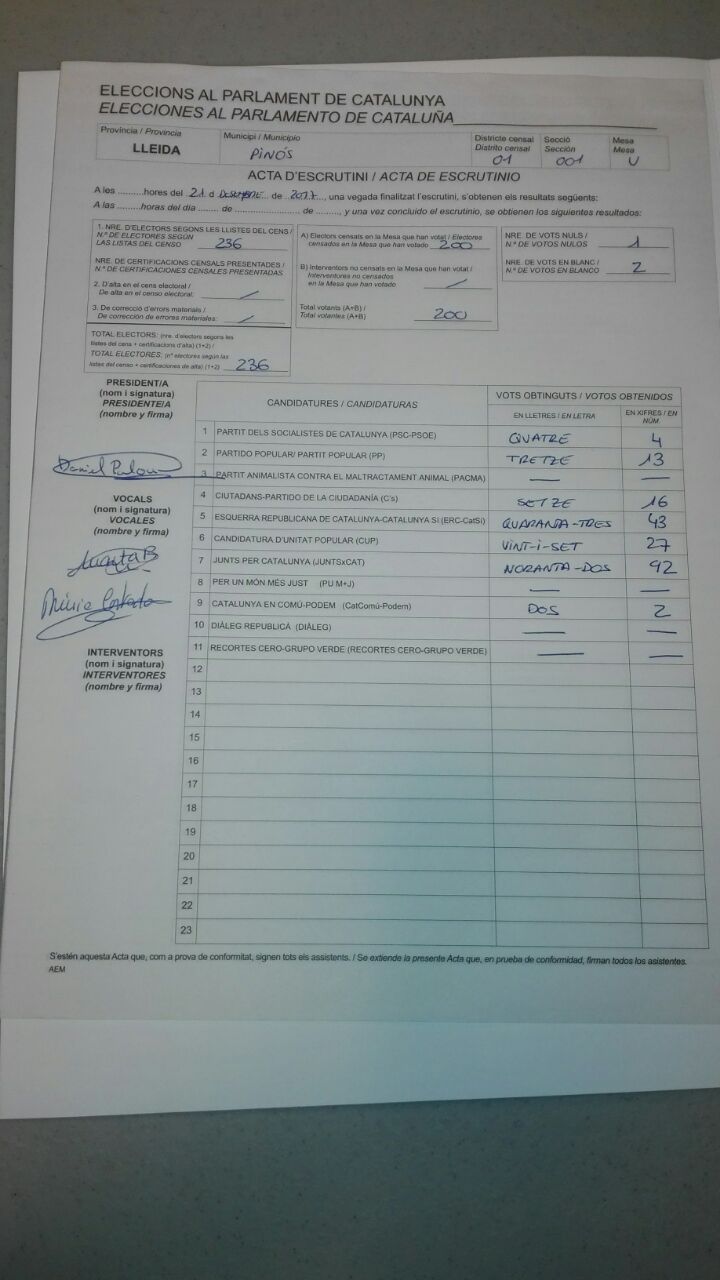 ELECCIONS AL PARLAMENT DE CATALUNYA
ELECCIONES AL PARLAMENTO DE CATALUÑA
Província / Provincia
LLEIDA
Municipi / Municipio
PINÓS
Districte censal
Distrito censal
01
Secció
Sección
001
Mesa
Mesa
U
ACTA D'ESCRUTINI / ACTA DE ESCRUTINIO
A les .........hores del 21 d DESEMBRE de 2017, una vegada finalitzat l'escrutini, s'obtenen els resultats següents:
A las .........horas del día ........ de ........................ de ........, y una vez concluido el escrutinio, se obtienen los siguientes resultados:
1. NRE. D'ELECTORS SEGONS LES LLISTES DEL CENS /
N.º DE ELECTORES SEGÚN
LAS LISTAS DEL CENSO 236
NRE. DE CERTIFICACIONS CENSALS PRESENTADES /
N.º DE CERTIFICACIONES CENSALES PRESENTADAS
2. D'alta en el cens electoral /
De alta en el censo electoral: /
3. De correcció d'errors materials /
De corrección de errores materiales: /
TOTAL ELECTORS: (nre. d'electors segons les
llistes del cens + certificacions d'alta) (1+2) /
TOTAL ELECTORES: (nº electores según las
listas del censo + certificaciones de alta) (1+2) 236
A) Electors censats en la Mesa que han votat / Electores
censados en la Mesa que han votado 200
B) Interventors no censats en la Mesa que han votat /
Interventores no censados
en la Mesa que han votado /
Total votants (A+B) /
Total votantes (A+B) 200
NRE. DE VOTS NULS /
N.º DE VOTOS NULOS 1
NRE. DE VOTS EN BLANC /
N.º DE VOTOS EN BLANCO 2
PRESIDENT/A
(nom i signatura)
PRESIDENTE/A
(nombre y firma)
Daniel
VOCALS
(nom i signatura)
VOCALES
(nombre y firma)
INTERVENTORS
(nom i signatura)
INTERVENTORES
(nombre y firma)
CANDIDATURES / CANDIDATURAS
VOTS OBTINGUTS / VOTOS OBTENIDOS
EN LLETRES / EN LETRA
EN XIFRES / EN
NÚM
1 PARTIT DELS SOCIALISTES DE CATALUNYA (PSC-PSOE) QUATRE 4
2 PARTIDO POPULAR/ PARTIT POPULAR (PP) TRETZE 13
3 PARTIT ANIMALISTA CONTRA EL MALTRACTAMENT ANIMAL (PACMA) — —
4 CIUTADANS-PARTIDO DE LA CIUDADANÍA (C's) SETZE 16
5 ESQUERRA REPUBLICANA DE CATALUNYA-CATALUNYA SÍ (ERC-CatSí) QUARANTA-TRES 43
6 CANDIDATURA D'UNITAT POPULAR (CUP) VINT-I-SET 27
7 JUNTS PER CATALUNYA (JUNTSxCAT) NORANTA-DOS 92
8 PER UN MÓN MÉS JUST (PU M+J) — —
9 CATALUNYA EN COMÚ-PODEM (CatComú-Podem) DOS 2
10 DIÀLEG REPUBLICÀ (DIÀLEG) — —
11 RECORTES CERO-GRUPO VERDE (RECORTES CERO-GRUPO VERDE) — —
12
13
14
15
16
17
18
19
20
21
22
23
S'estén aquesta Acta que, com a prova de conformitat, signen tots els assistents. / Se extiende la presente Acta que, en prueba de conformidad, firman todos los asistentes.
AEM